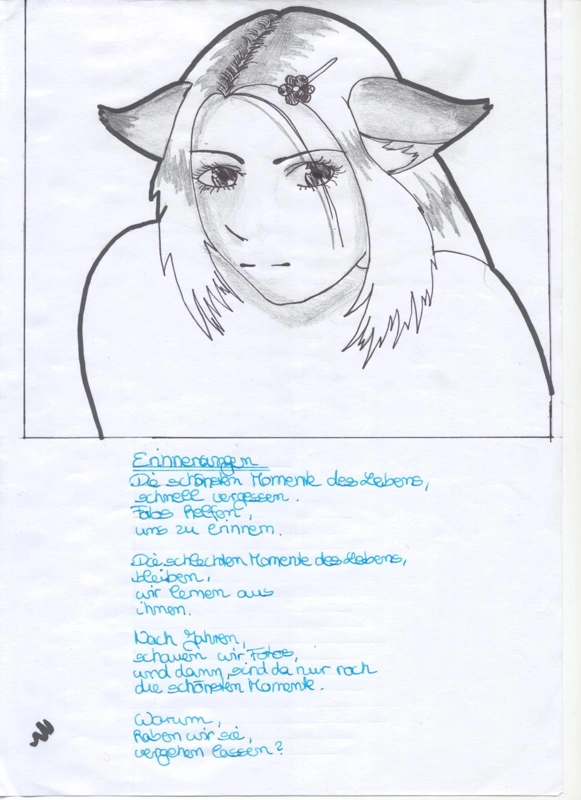 Erinnerungen
Die schönsten Momente des Lebens,
schnell vergessen.
Fotos helfen,
uns zu erinnern.
Die schlechten Momente des Lebens,
bleiben,
wir lernen aus
ihnen.
Nach Jahren,
schauen wir Fotos,
und dann, sind da nur noch
die schönsten Momente.
Warum,
haben wir sie,
vergehen lassen?